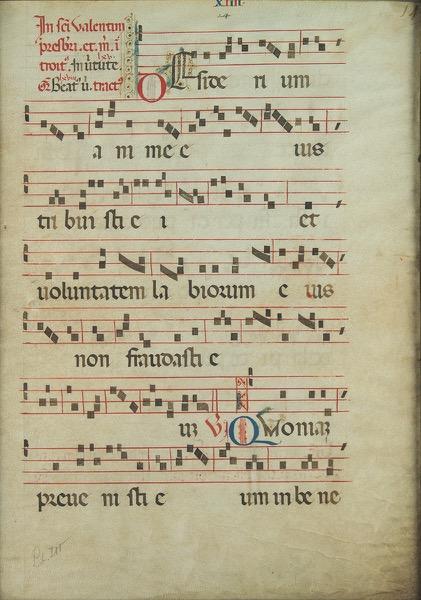 XIIII
In sci Valentini
presbri. et. m. i
troit. In uirtute.
Beat. u. tract.
Deside ri um
a ni me e ius
tri bui sti e i et
uoluntatem la biorum e ius
non fraudasti e
um V Qmoniaz
preue ni sti e um in be ne